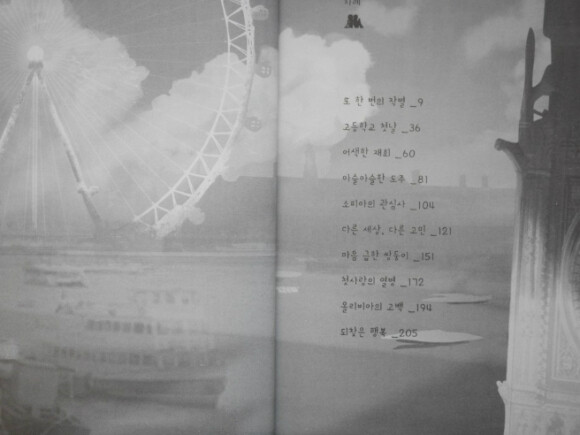 차례
또 한 번의 작별 _9
고등학교 첫날 _36
어색한 재회 _60
아슬아슬한 도주 _81
소피아의 관심사 _104
다른 세상, 다른 고민 _121
마음 급한 쌍둥이 _151
첫사랑의 열병 _172
올리비아의 고백 _194
되찾은 행복 _205